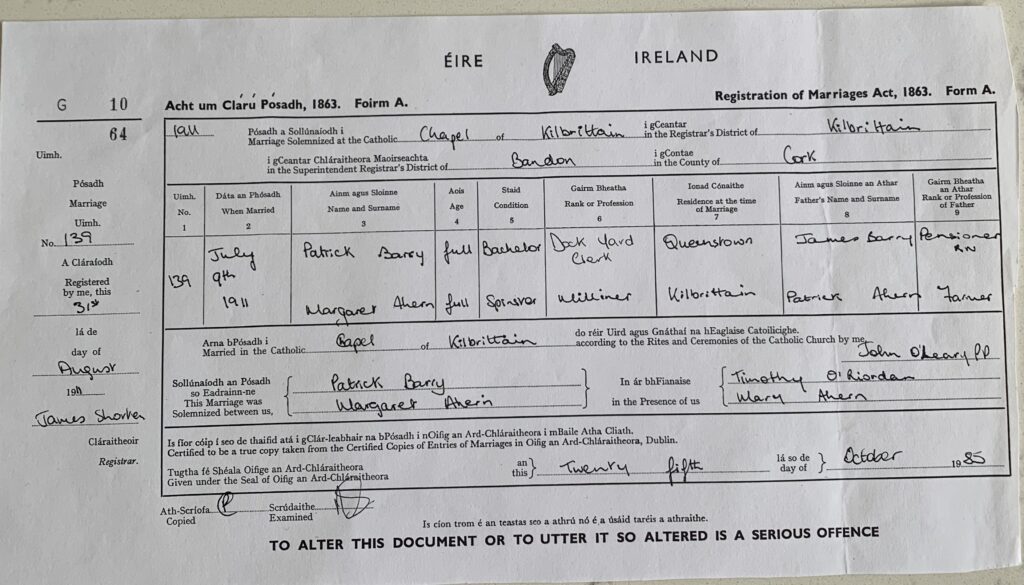 ÉIRE IRELAND
G 10
64
Acht um Clárú Pósadh, 1863. Foirm A. Registration of Marriages Act, 1863. Form A.
Uimh.
Pósadh
Marriage
Uimh.
No. 139
A Cláraíodh
Registered
by me, this
31st
lá de
day of
August
1911
James Shorten
Cláraitheoir
Registrar.
1911 Pósadh a Sollúnaíodh i
Marriage Solemnized at the Catholic Chapel of Kilbrittain i gCeantar
in the Registrar's District of Kilbrittain
i gCeantar Chláraitheora Maoirseachta
in the Superintendent Registrar's District of Bandon i gContae
in the County of Cork
Uimh. Dáta an Phósadh Ainm agus Sloinne Aois Staid Gairm Bheatha Ionad Cónaithe Ainm agus Sloinne an Athar Gairm Bheatha an Athar
No. When Married Name and Surname Age Condition Rank or Profession Residence at the time of Marriage Father's Name and Surname Rank or Profession of Father
1 2 3 4 5 6 7 8 9
139 July 9th 1911 Patrick Barry full Bachelor Dock Yard Clerk Queenstown James Barry Pensioner RN
Margaret Ahern full Spinster Milliner Kilbrittain Patrick Ahern Farmer
Arna bPósadh i
Married in the Catholic Capel of Kilbrittain do réir Uird agus Gnáthaí na hEaglaise Catoilicighe.
according to the Rites and Ceremonies of the Catholic Church by me,
John O'Leary PP
Sollúnaíodh an Pósadh
so Eadrainn-ne
This Marriage was
Solemnized between us,
Patrick Barry
Margaret Ahern
In ár bhFianaise
in the Presence of us
Timothy O'Riordan
Mary Ahern
Is fíor cóip í seo de thaifid atá i gClár-leabhair na bPósadh i nOifig an Ard-Chláraitheora i mBaile Atha Cliath.
Certified to be a true copy taken from the Certified Copies of Entries of Marriages in Oifig an Ard-Chláraitheora, Dublin.
Tugtha fé Shéala Oifige an Ard-Chláraitheora
Given under the Seal of Oifig an Ard-Chláraitheora
an
this Twenty fifth lá so de
day of October 1985
Ath-Scríofa
Copied
Scrúdaithe
Examined
Is cíon trom é an teastas seo a athrú nó é a úsáid taréis a athraithe.
TO ALTER THIS DOCUMENT OR TO UTTER IT SO ALTERED IS A SERIOUS OFFENCE